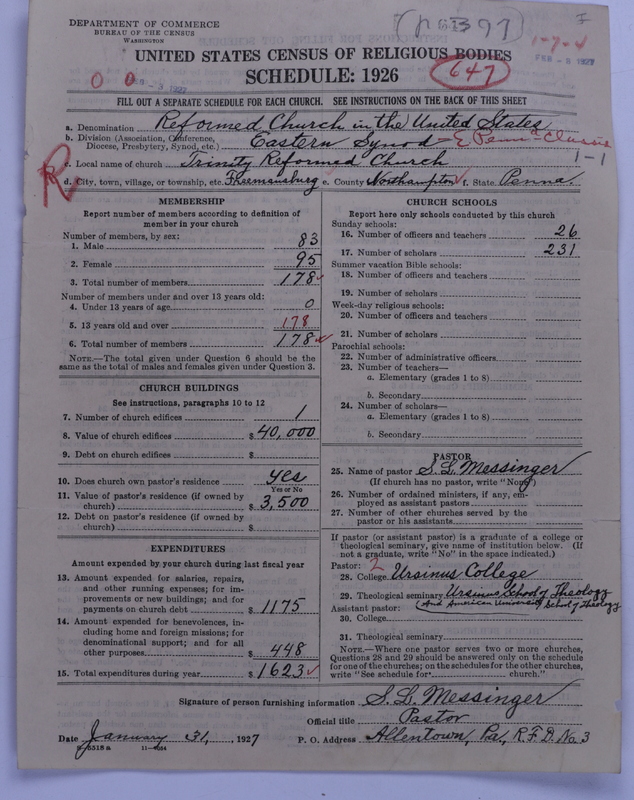 DEPARTMENT OF COMMERCE
BUREAU OF THE CENSUS
WASHINGTON
1-7-4
FEB - 3 1927
FEB - 8 1927
UNITED STATES CENSUS OF RELIGIOUS BODIES
SCHEDULE: 1926
647
0 0
FILL OUT A SEPARATE SCHEDULE FOR EACH CHURCH. SEE INSTRUCTIONS ON THE BACK OF THIS SHEET
a. Denomination Reformed Church in the United States
b. Division (Association, Conference, Diocese, Presbytery, Synod, etc.) Eastern Synod - E Penna Classis
1-1
c. Local name of church Trinity Reformed Church
R
d. City, town, village, or township, etc. Freemansburg e. County Northampton f. State Penna.
MEMBERSHIP
Report number of members according to definition of member in your church
Number of members, by sex:
1. Male 83
2. Female 95
3. Total number of members 178
Number of members under and over 13 years old:
4. Under 13 years of age 0
5. 13 years old and over 178
6. Total number of members 178
NOTE.—The total given under Question 6 should be the same as the total of males and females given under Question 3.
CHURCH BUILDINGS
See instructions, paragraphs 10 to 12
7. Number of church edifices 1
8. Value of church edifices $40,000
9. Debt on church edifices $
10. Does church own pastor's residence? yes
Yes or No
11. Value of pastor's residence (if owned by church) $3,500
12. Debt on pastor's residence (if owned by church) $
EXPENDITURES
Amount expended by your church during last fiscal year
13. Amount expended for salaries, repairs, and other running expenses; for improvements or new buildings; and for payments on church debt $1175
14. Amount expended for benevolences, including home and foreign missions; for denominational support; and for all other purposes $448
15. Total expenditures during year $1623
CHURCH SCHOOLS
Report here only schools conducted by this church
Sunday schools:
16. Number of officers and teachers 26
17. Number of scholars 231
Summer vacation Bible schools:
18. Number of officers and teachers
19. Number of scholars
Week-day religious schools:
20. Number of officers and teachers
21. Number of scholars
Parochial schools:
22. Number of administrative officers
23. Number of teachers—
a. Elementary (grades 1 to 8)
b. Secondary
24. Number of scholars—
a. Elementary (grades 1 to 8)
b. Secondary
PASTOR
25. Name of pastor S. L. Messinger
(If church has no pastor, write "None")
26. Number of ordained ministers, if any, employed as assistant pastors
27. Number of other churches served by the pastor or his assistants
If pastor (or assistant pastor) is a graduate of a college or theological seminary, give name of institution below. (If not a graduate, write "No" in the space indicated.)
Pastor: 2
28. College Ursinus College
29. Theological seminary Ursinus School of Theology
Assistant pastor: (And American University School of Theology
30. College
31. Theological seminary
NOTE.—Where one pastor serves two or more churches, Questions 28 and 29 should be answered only on the schedule for one of the churches; on the schedules for the other churches, write "See schedule for church."
Signature of person furnishing information S. L. Messinger
Official title Pastor
Date January 31, 1927 P. O. Address Allentown, Pa., R.F.D. No. 3
11—4634